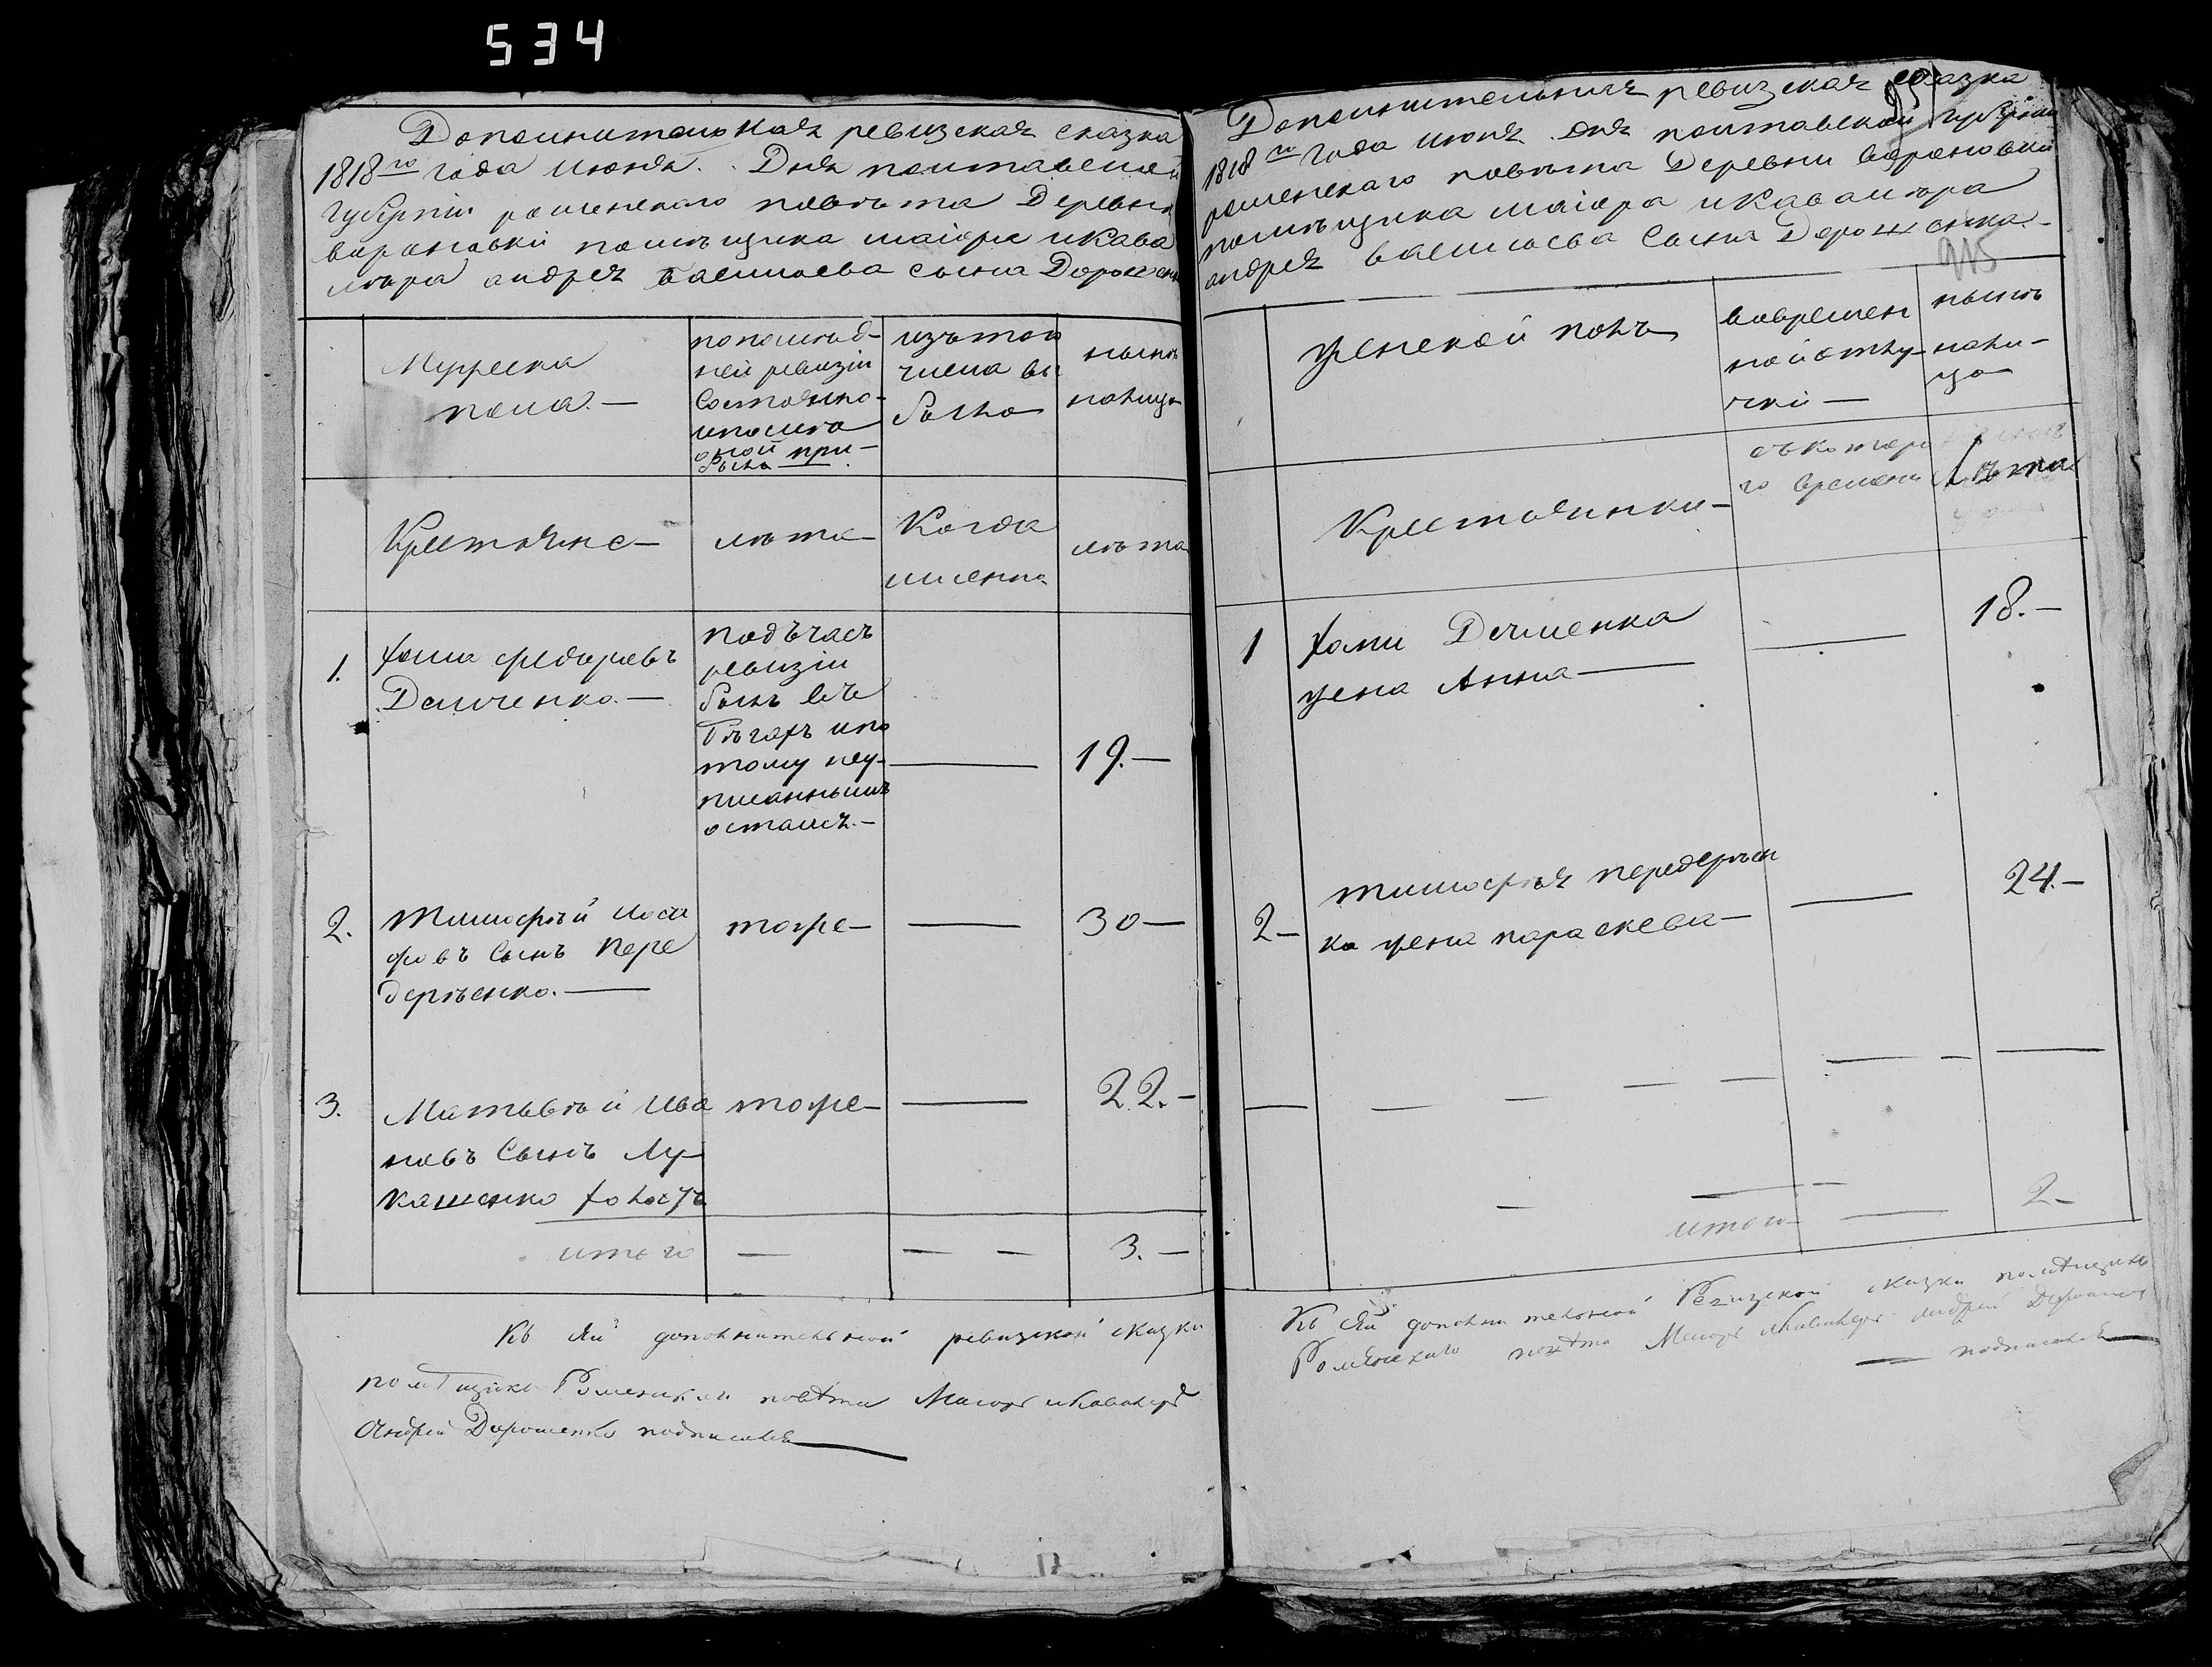 534
Дополнительная ревизская сказка
1818го года июня. Дня полтавской
губернии роменского повѣта Деревни
вороновки помѣщика маiора и Кава
лѣра андрея васильева сына Дорошенк
Мужеска
пола.—
по послѣд-
ней ревизiи
Состояло
и после
оной при-
было
изъ того
числа вы
было
нынѣ
налицо
Крестьяне—
лѣта
Когда
именно
лѣта
1. хома федоровъ
Демченко.—
подъ часъ
ревизiи
былъ въ
бѣгахъ и по
тому неу-
писаннымъ
остался.—
19.—
2. тимофѣй иоси
фовъ Сынъ Пере
дерѣенко.—
тоже—
30—
3. Матьвѣй ива
новъ Сынъ Лу-
кашенко холостъ
тоже—
22.—
итого — — — 3.—
Къ сей дополнительной ревизской сказки
помѣщикъ Роменского повѣта Маиоръ и Кавалеръ
Андрей Дорошенко подписался
Дополнительная ревизская сказка
1818го года июня. дня полтавской губернiи
роменского повѣта Деревни вороновки
помѣщика маiора и Кавалѣра
андрея васильева Сына Дорошенка.—
915
женской полъ
вовремен
ной отлу-
чкѣ—
нынѣ
нали-
цо
Крестьянки—
съ котора
го времени
Лѣта
1 хоми Демченка
жена Анна—
18.—
2— тимофѣя передерѣен
ка жена параскева—
24.—
итого— — 2—
Къ сей дополнительной Ревизской сказки помѣщикъ
Роменского повѣта Маиоръ и Кавалеръ Андрей Дорошенко
подписался